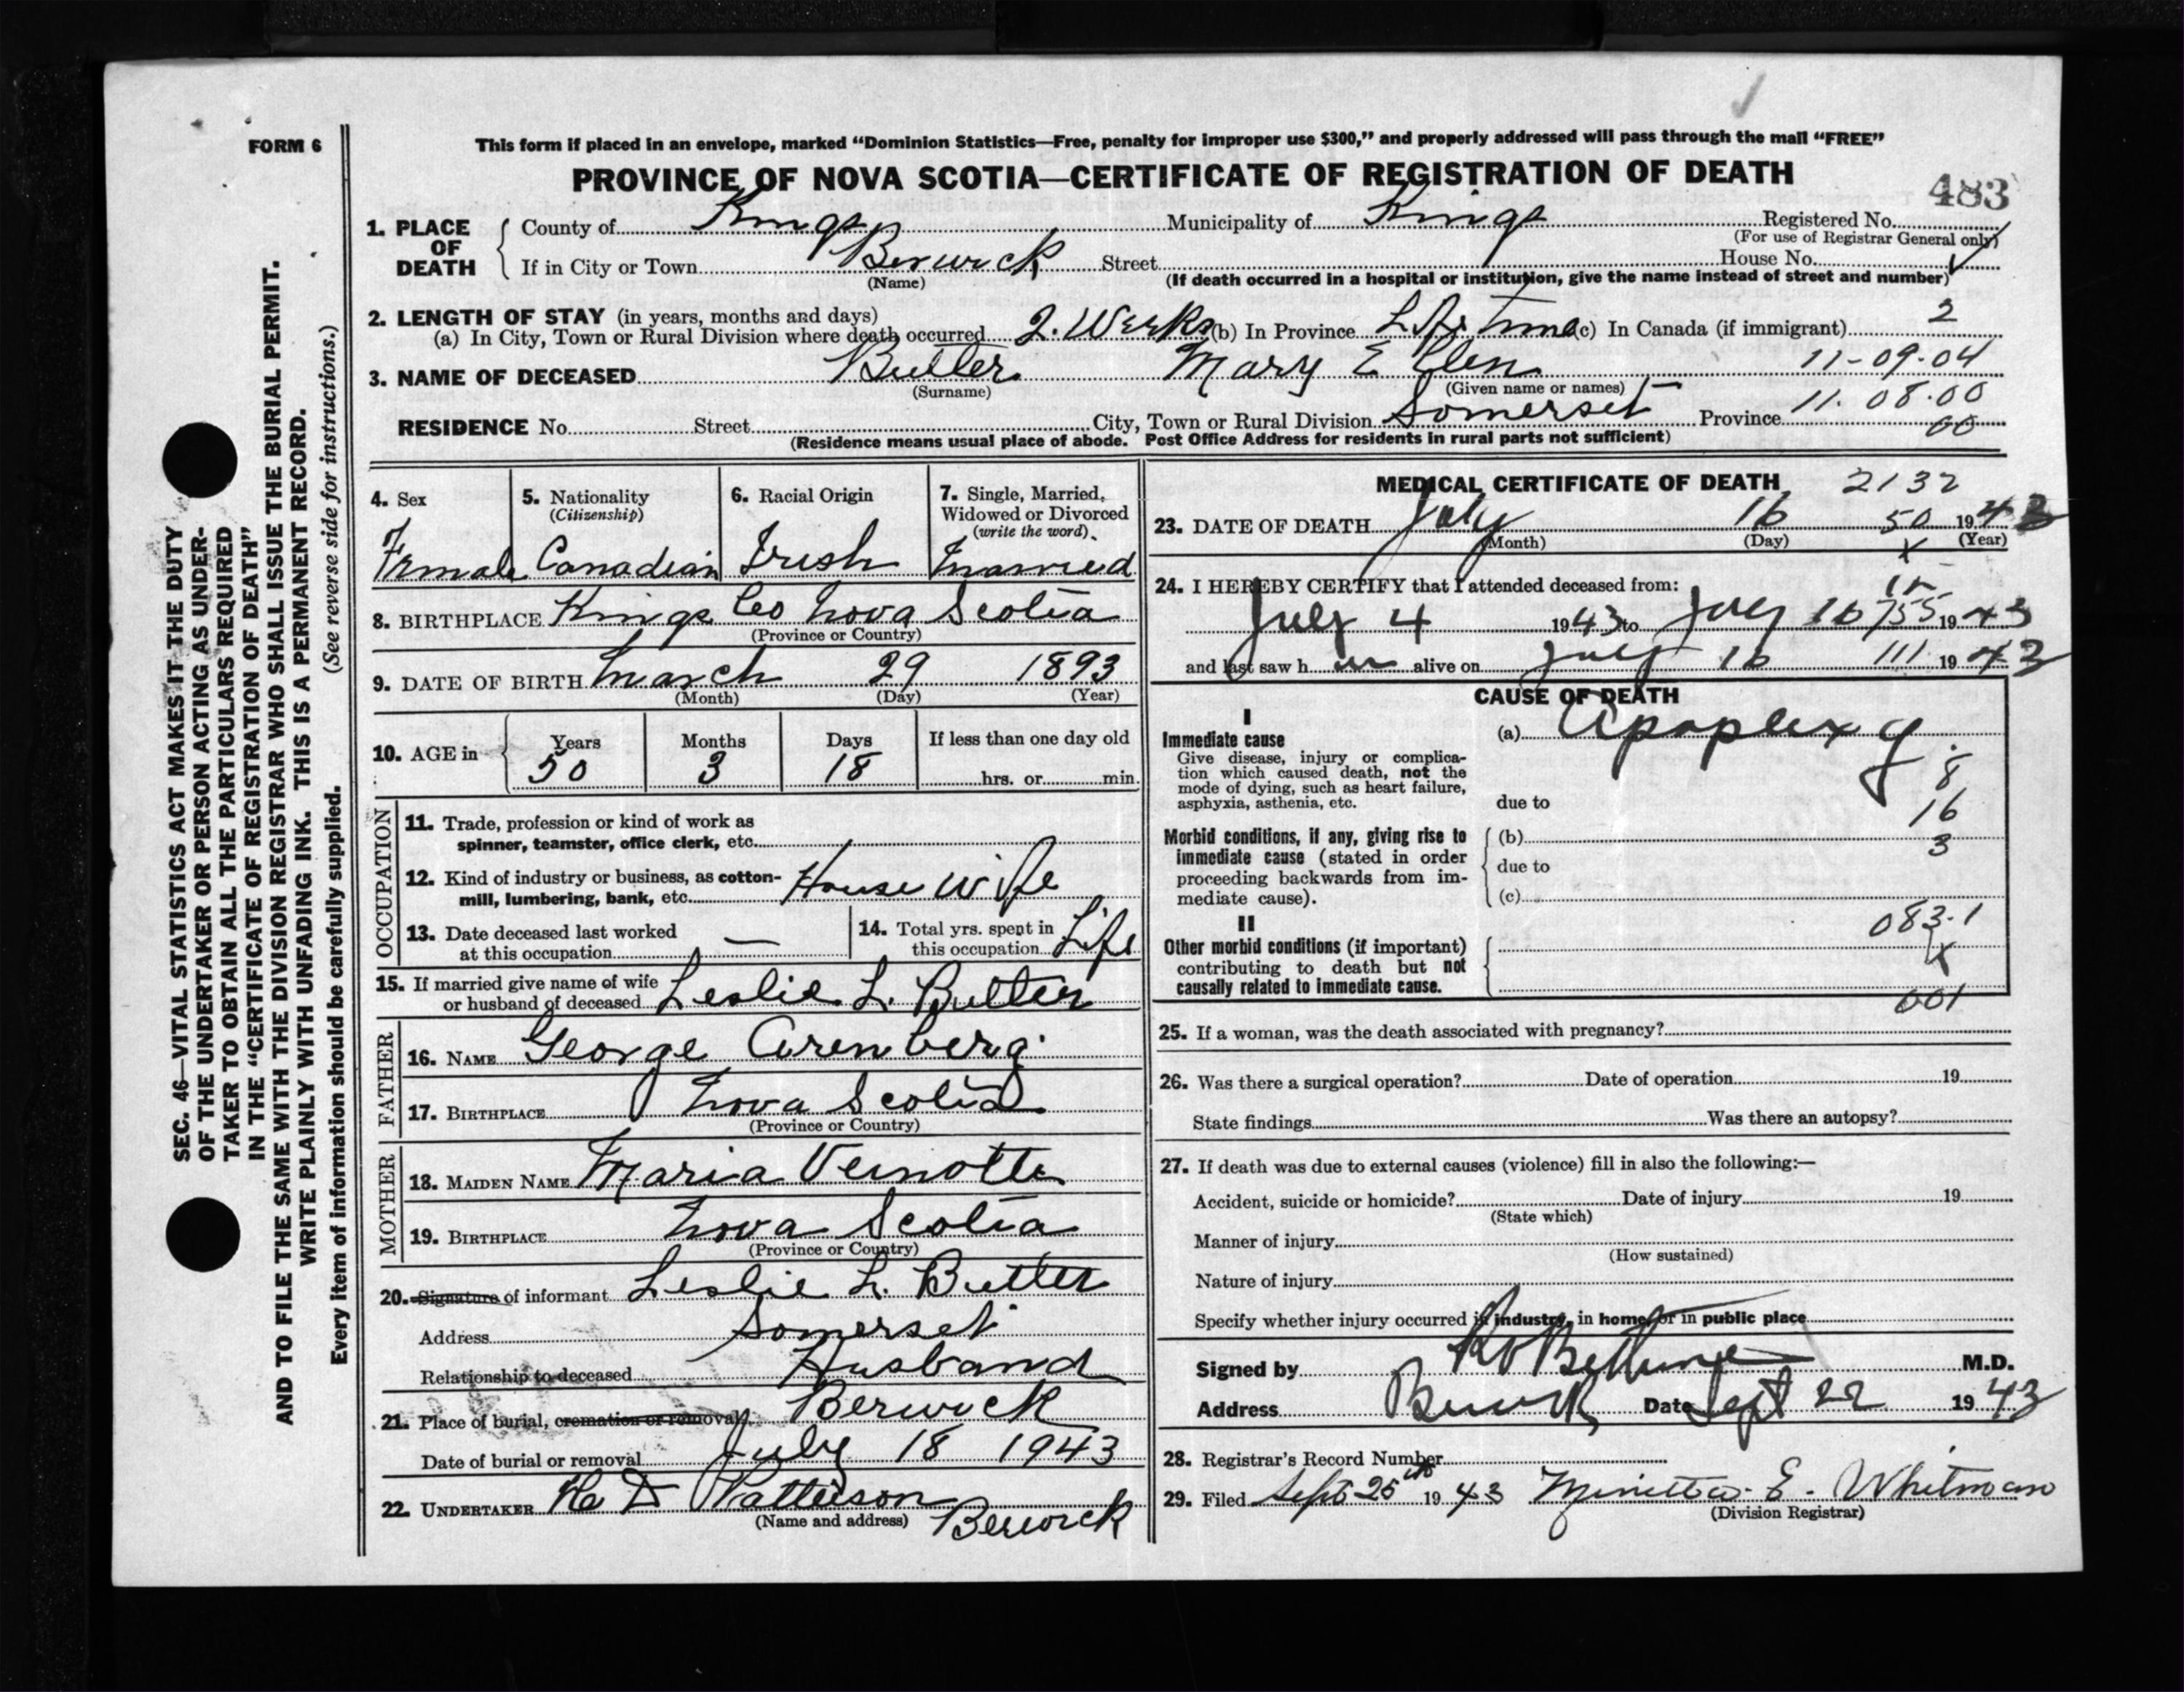 FORM 6
This form if placed in an envelope, marked “Dominion Statistics—Free, penalty for improper use $300,” and properly addressed will pass through the mail “FREE”
PROVINCE OF NOVA SCOTIA—CERTIFICATE OF REGISTRATION OF DEATH
483
1. PLACE OF DEATH { County of Kings Municipality of Kings Registered No.
(For use of Registrar General only)
If in City or Town Berwick Street House No.
(Name) (If death occurred in a hospital or institution, give the name instead of street and number)
2. LENGTH OF STAY (in years, months and days)
(a) In City, Town or Rural Division where death occurred 2. Weeks (b) In Province Life time (c) In Canada (if immigrant) 2
3. NAME OF DECEASED Butler Mary Ellen 11-09-04
(Surname) (Given name or names)
RESIDENCE No. Street City, Town or Rural Division Somerset Province 11. 08.00
00
(Residence means usual place of abode. Post Office Address for residents in rural parts not sufficient)
4. Sex
Female
5. Nationality
(Citizenship)
Canadian
6. Racial Origin
Irish
7. Single, Married,
Widowed or Divorced
(write the word)
Married
8. BIRTHPLACE Kings Co Nova Scotia
(Province or Country)
9. DATE OF BIRTH March 29 1893
(Month) (Day) (Year)
10. AGE in { Years Months Days If less than one day old
50 3 18 hrs. or min.
OCCUPATION
11. Trade, profession or kind of work as
spinner, teamster, office clerk, etc.
12. Kind of industry or business, as cotton-
mill, lumbering, bank, etc. House Wife
13. Date deceased last worked
at this occupation —
14. Total yrs. spent in
this occupation Life
15. If married give name of wife
or husband of deceased Leslie. L. Butler
FATHER
16. NAME George Arenberg
17. BIRTHPLACE Nova Scotia
(Province or Country)
MOTHER
18. MAIDEN NAME Maria Veinotte
19. BIRTHPLACE Nova Scotia
(Province or Country)
20. Signature of informant Leslie L. Butler
Address Somerset
Relationship to deceased Husband
21. Place of burial, cremation or removal Berwick
Date of burial or removal July 18 1943
22. UNDERTAKER Patterson
(Name and address) Berwick
MEDICAL CERTIFICATE OF DEATH 2132
23. DATE OF DEATH July 16 50 1943
(Month) (Day) x (Year)
24. I HEREBY CERTIFY that I attended deceased from:
July 4 1943 to July 16 755 1943
and last saw h er alive on July 16 111 1943
CAUSE OF DEATH
I
Immediate cause
Give disease, injury or complica-
tion which caused death, not the
mode of dying, such as heart failure,
asphyxia, asthenia, etc.
(a) Apoplexy.
8
due to
16
Morbid conditions, if any, giving rise to
immediate cause (stated in order
proceeding backwards from im-
mediate cause).
(b)
3
due to
(c)
II
083.1
Other morbid conditions (if important)
contributing to death but not
causally related to immediate cause.
x
001
25. If a woman, was the death associated with pregnancy?
26. Was there a surgical operation? Date of operation 19
State findings Was there an autopsy?
27. If death was due to external causes (violence) fill in also the following:—
Accident, suicide or homicide? Date of injury 19
(State which)
Manner of injury
(How sustained)
Nature of injury
Specify whether injury occurred in industry, in home, or in public place
Signed by Bethune M.D.
Address Berwick Date Sept 22 1943
28. Registrar's Record Number
29. Filed Sept 25 1943 E. Whitman
(Division Registrar)
SEC. 46—VITAL STATISTICS ACT MAKES IT THE DUTY
OF THE UNDERTAKER OR PERSON ACTING AS UNDER-
TAKER TO OBTAIN ALL THE PARTICULARS REQUIRED
IN THE “CERTIFICATE OF REGISTRATION OF DEATH”
AND TO FILE THE SAME WITH THE DIVISION REGISTRAR WHO SHALL ISSUE THE BURIAL PERMIT.
WRITE PLAINLY WITH UNFADING INK. THIS IS A PERMANENT RECORD.
Every item of information should be carefully supplied. (See reverse side for instructions.)